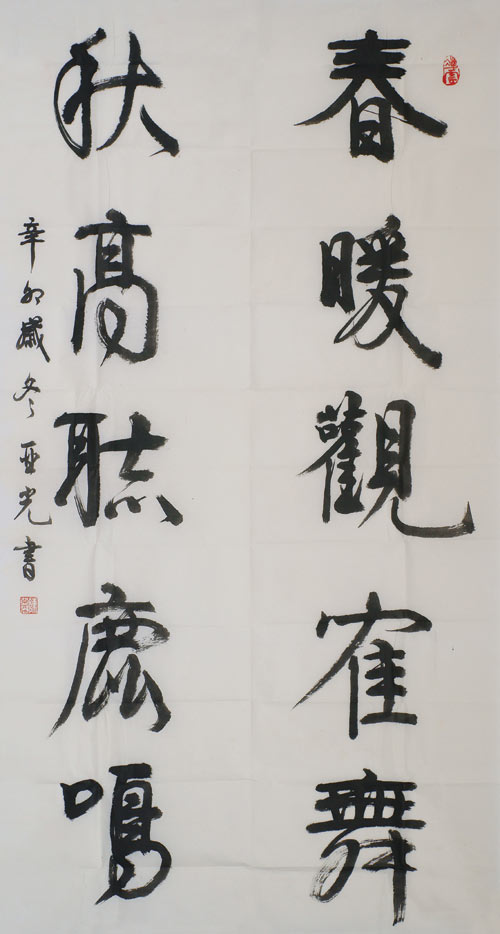 春暖觀隺舞
秋高聽鹿鳴
辛卯歲冬亚光書